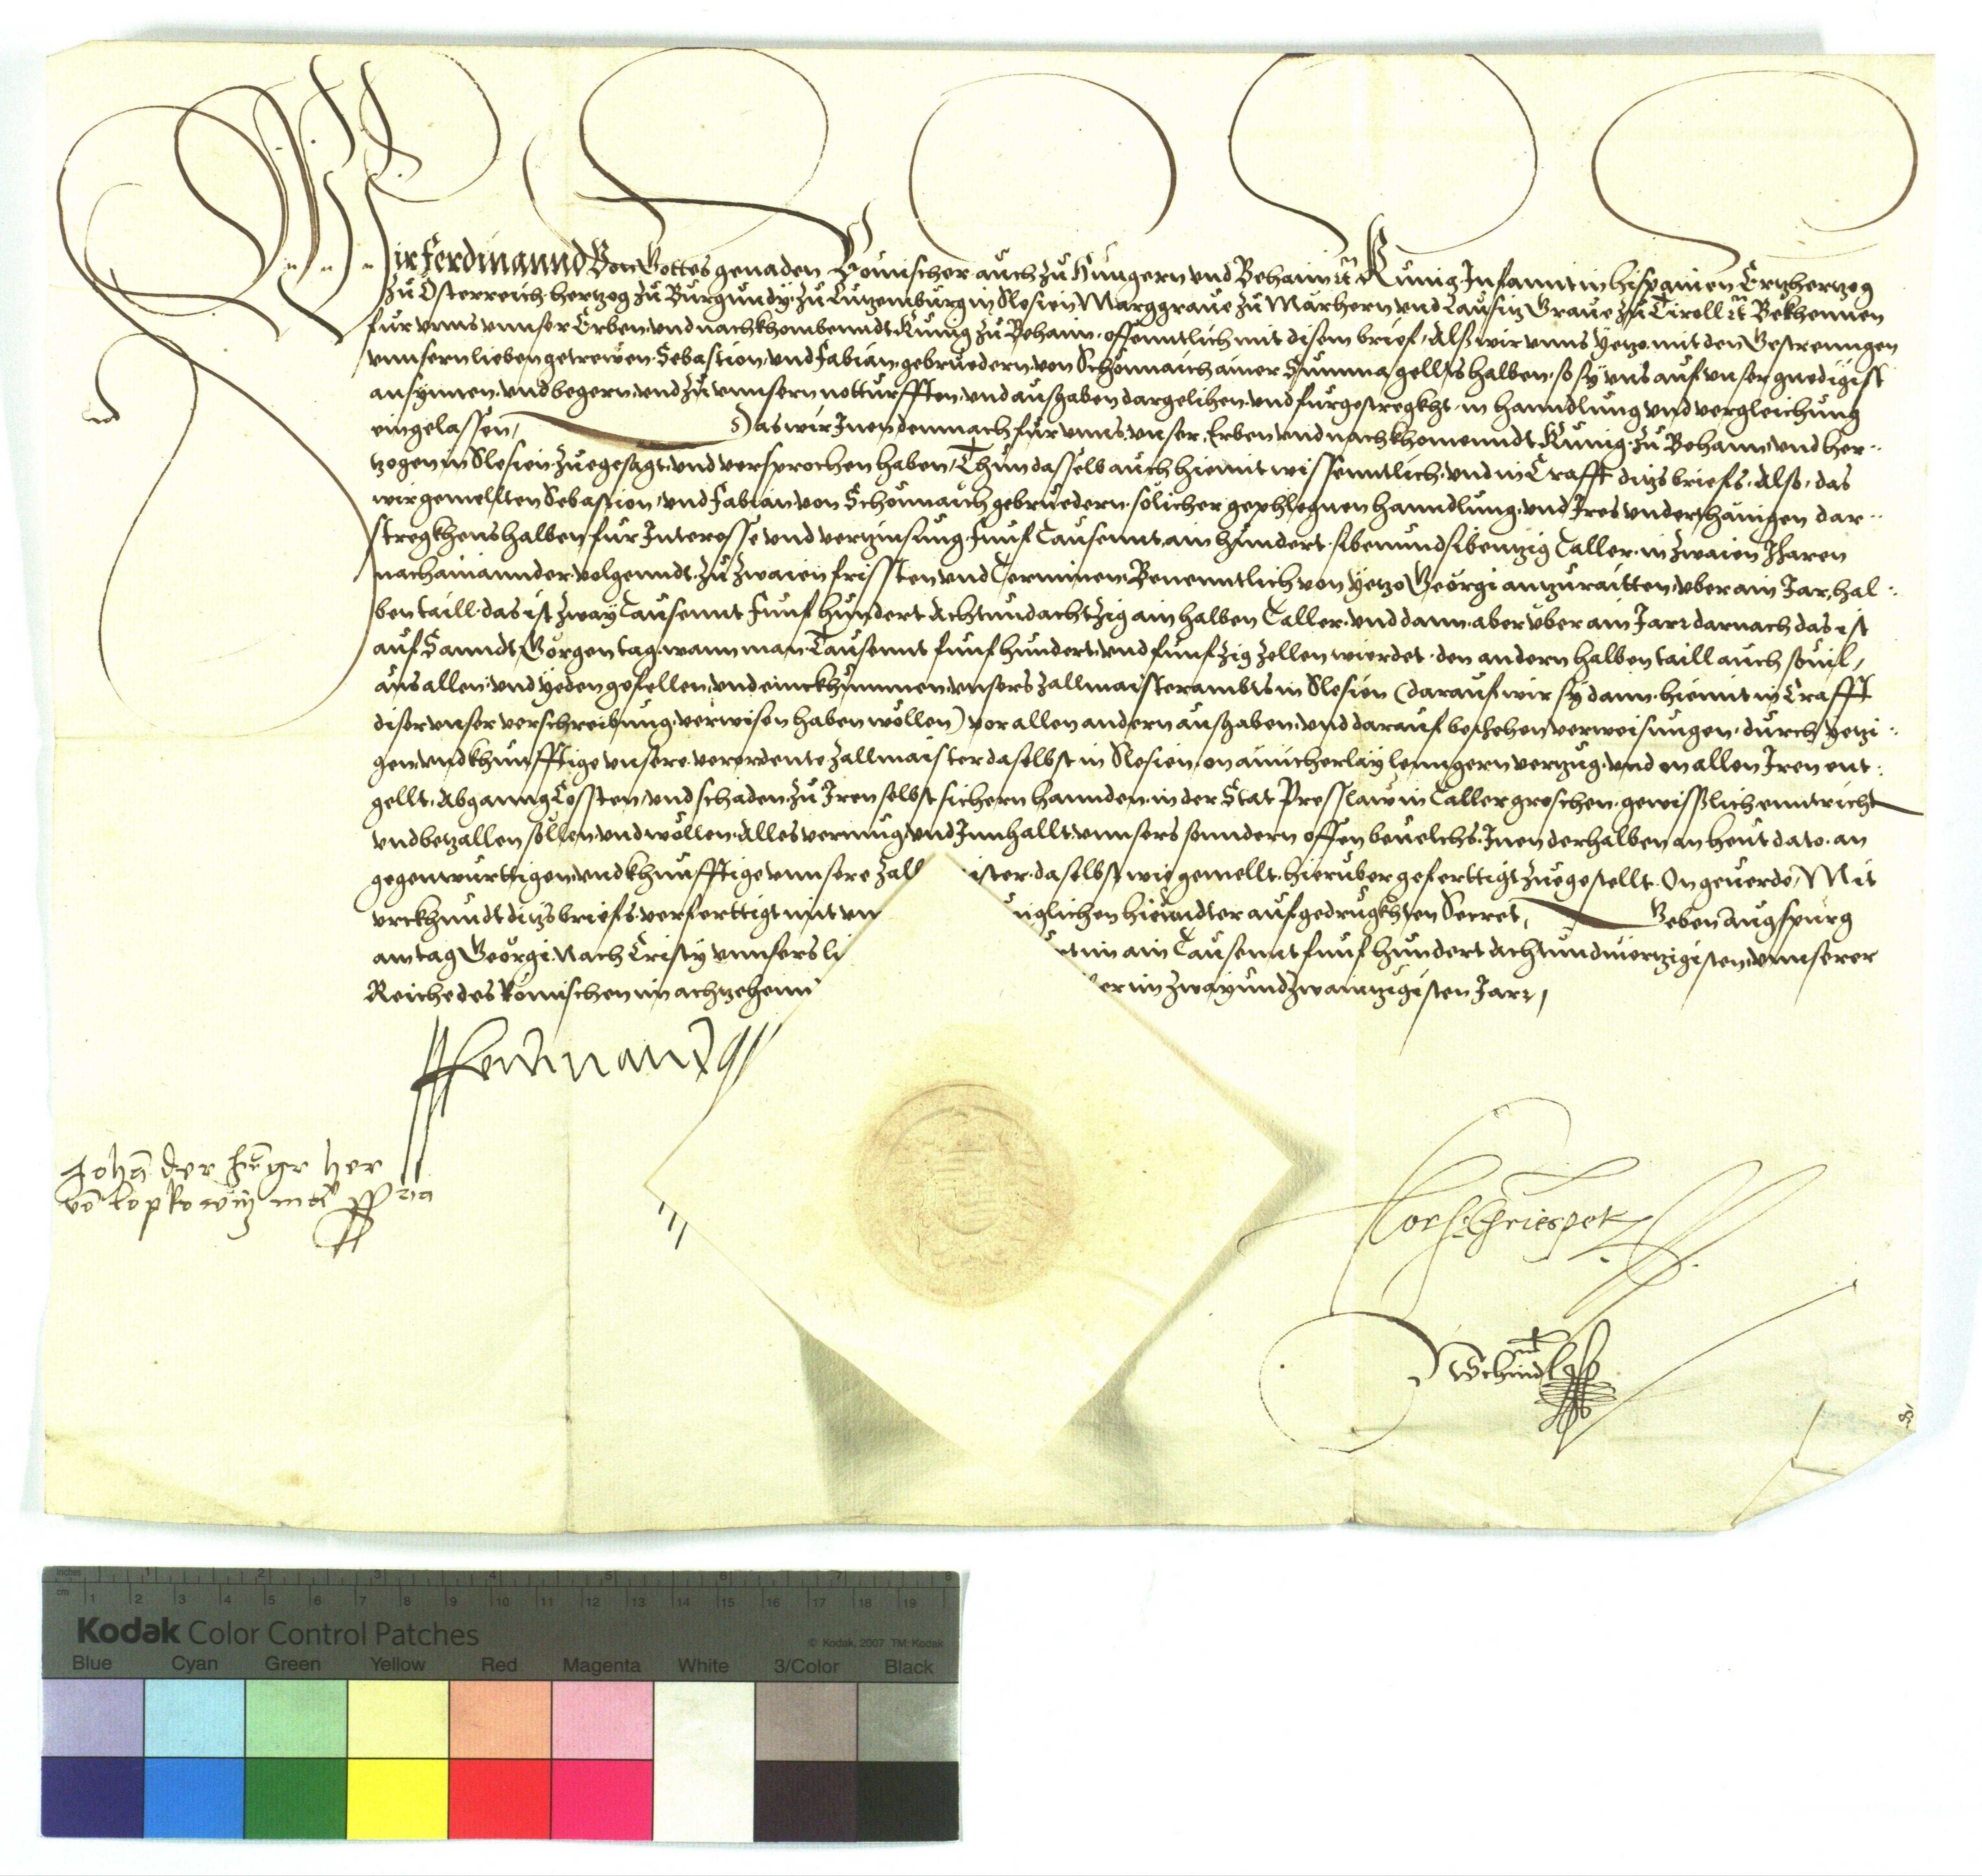 Wir Ferdinannd Von Gottes genaden Römischer auch zu Hungern vnd Behaim &c Kunig Infannt in hispanien Ertzhertzog
zu Osterreich hertzog zu Burgundy zu Lutzemburg in Slesien Marggraue zu Marhern vnd Lausitz Graue zu Tiroll &c Bekhennen
fur vnns vnnser Erben vnd nachkhombenndt Kunig zu Behaim offenntlich mit disem brief, Als wir vnns yetzo mit den Gestrenngen
vnnsern lieben getrewen Sebastion vnd Fabian gebruedern von Schönnaich ainer Summa gellts halben, so sy vns auf vnser gnedigist
ansynnen vnd begern vnd zu vnnsern notturfften vnd ausgaben dargelihen vnd furgestregkht in hanndlung vnd vergleichung
eingelassen, Das wir Inen demnach fur vnns vnser Erben vnd nachkhomenndt Kunig zu Behaim vnd her-
tzogen in Slesien zuegesagt vnd versprochen haben, Thun dasselb auch hiemit wissenntlich vnd in Crafft ditzs briefs, Also, das
wir gemellten Sebastion vnd Fabian von Schönnaich gebruedern solicher gephlegnen hanndlung vnd Ires vnderthänigen dar-
stregkhens halben fur Interesse vnd vertzinsung funf Tausennt ain hundert sibenundsibentzig Taller in zwaien Jharen
nachainannder volgenndt zu zwaien frissten vnd Terminen Benenntlich von yetzo Georgi antzuraitten vber ain Jar, hal-
ben taill das ist zway Tausennt Funfhundert Achtundachtzig ain halben Taller vnd dann aber vber ain Jarr darnach das ist
auf Sanndt Görgen tag wann man Tausennt funfhundert vnd funfzig zellen wierdet den andern halben taill auch souil,
aus allen vnd yeden gefellen vnd einckhummen vnsers zallmaisterambts in Slesien (darauf wir sy dann hiemit in Crafft
diser vnser verschreibung verwisen haben wöllen) vor allen andern ausgaben vnd darauf beschehen verweisungen durch yetzi-
gen vnd khunfftige vnsere verordente zallmaister daselbst in Slesien on ainicherlay lenngern vertzug vnd on allen Iren ent-
gellt, Abganng Cossten vnd schaden zu Iren selbst sichern hannden in der Stat Presslaw in Taller groschen gewisslich enntricht
vnd betzallen sollen vnd wöllen Alles vermug vnd Innhallt vnnsers sonndern offen beuelchs Inen derhalben an heut dato an
gegenwurttigen vnd khunfftige vnnsere zall ister daselbst wie gemellt hieruber geferttigt zuegestellt On geuerde, Mit
vrkhundt ditzs briefs verferttigt mit vn niglichen hieunndter aufgedrugkhten Secret, Geben Augspurg
am tag Georgi Nach Cristy vnnsers li urt im ain Tausennt funfhundert Achtundviertzigisten vnnserer
Reiche des Römischen im achtzehenn er im zwayundzwanntzigisten Jarr,
Ferdinand
Johan der Junger her
von Lopkowitz
Griespek